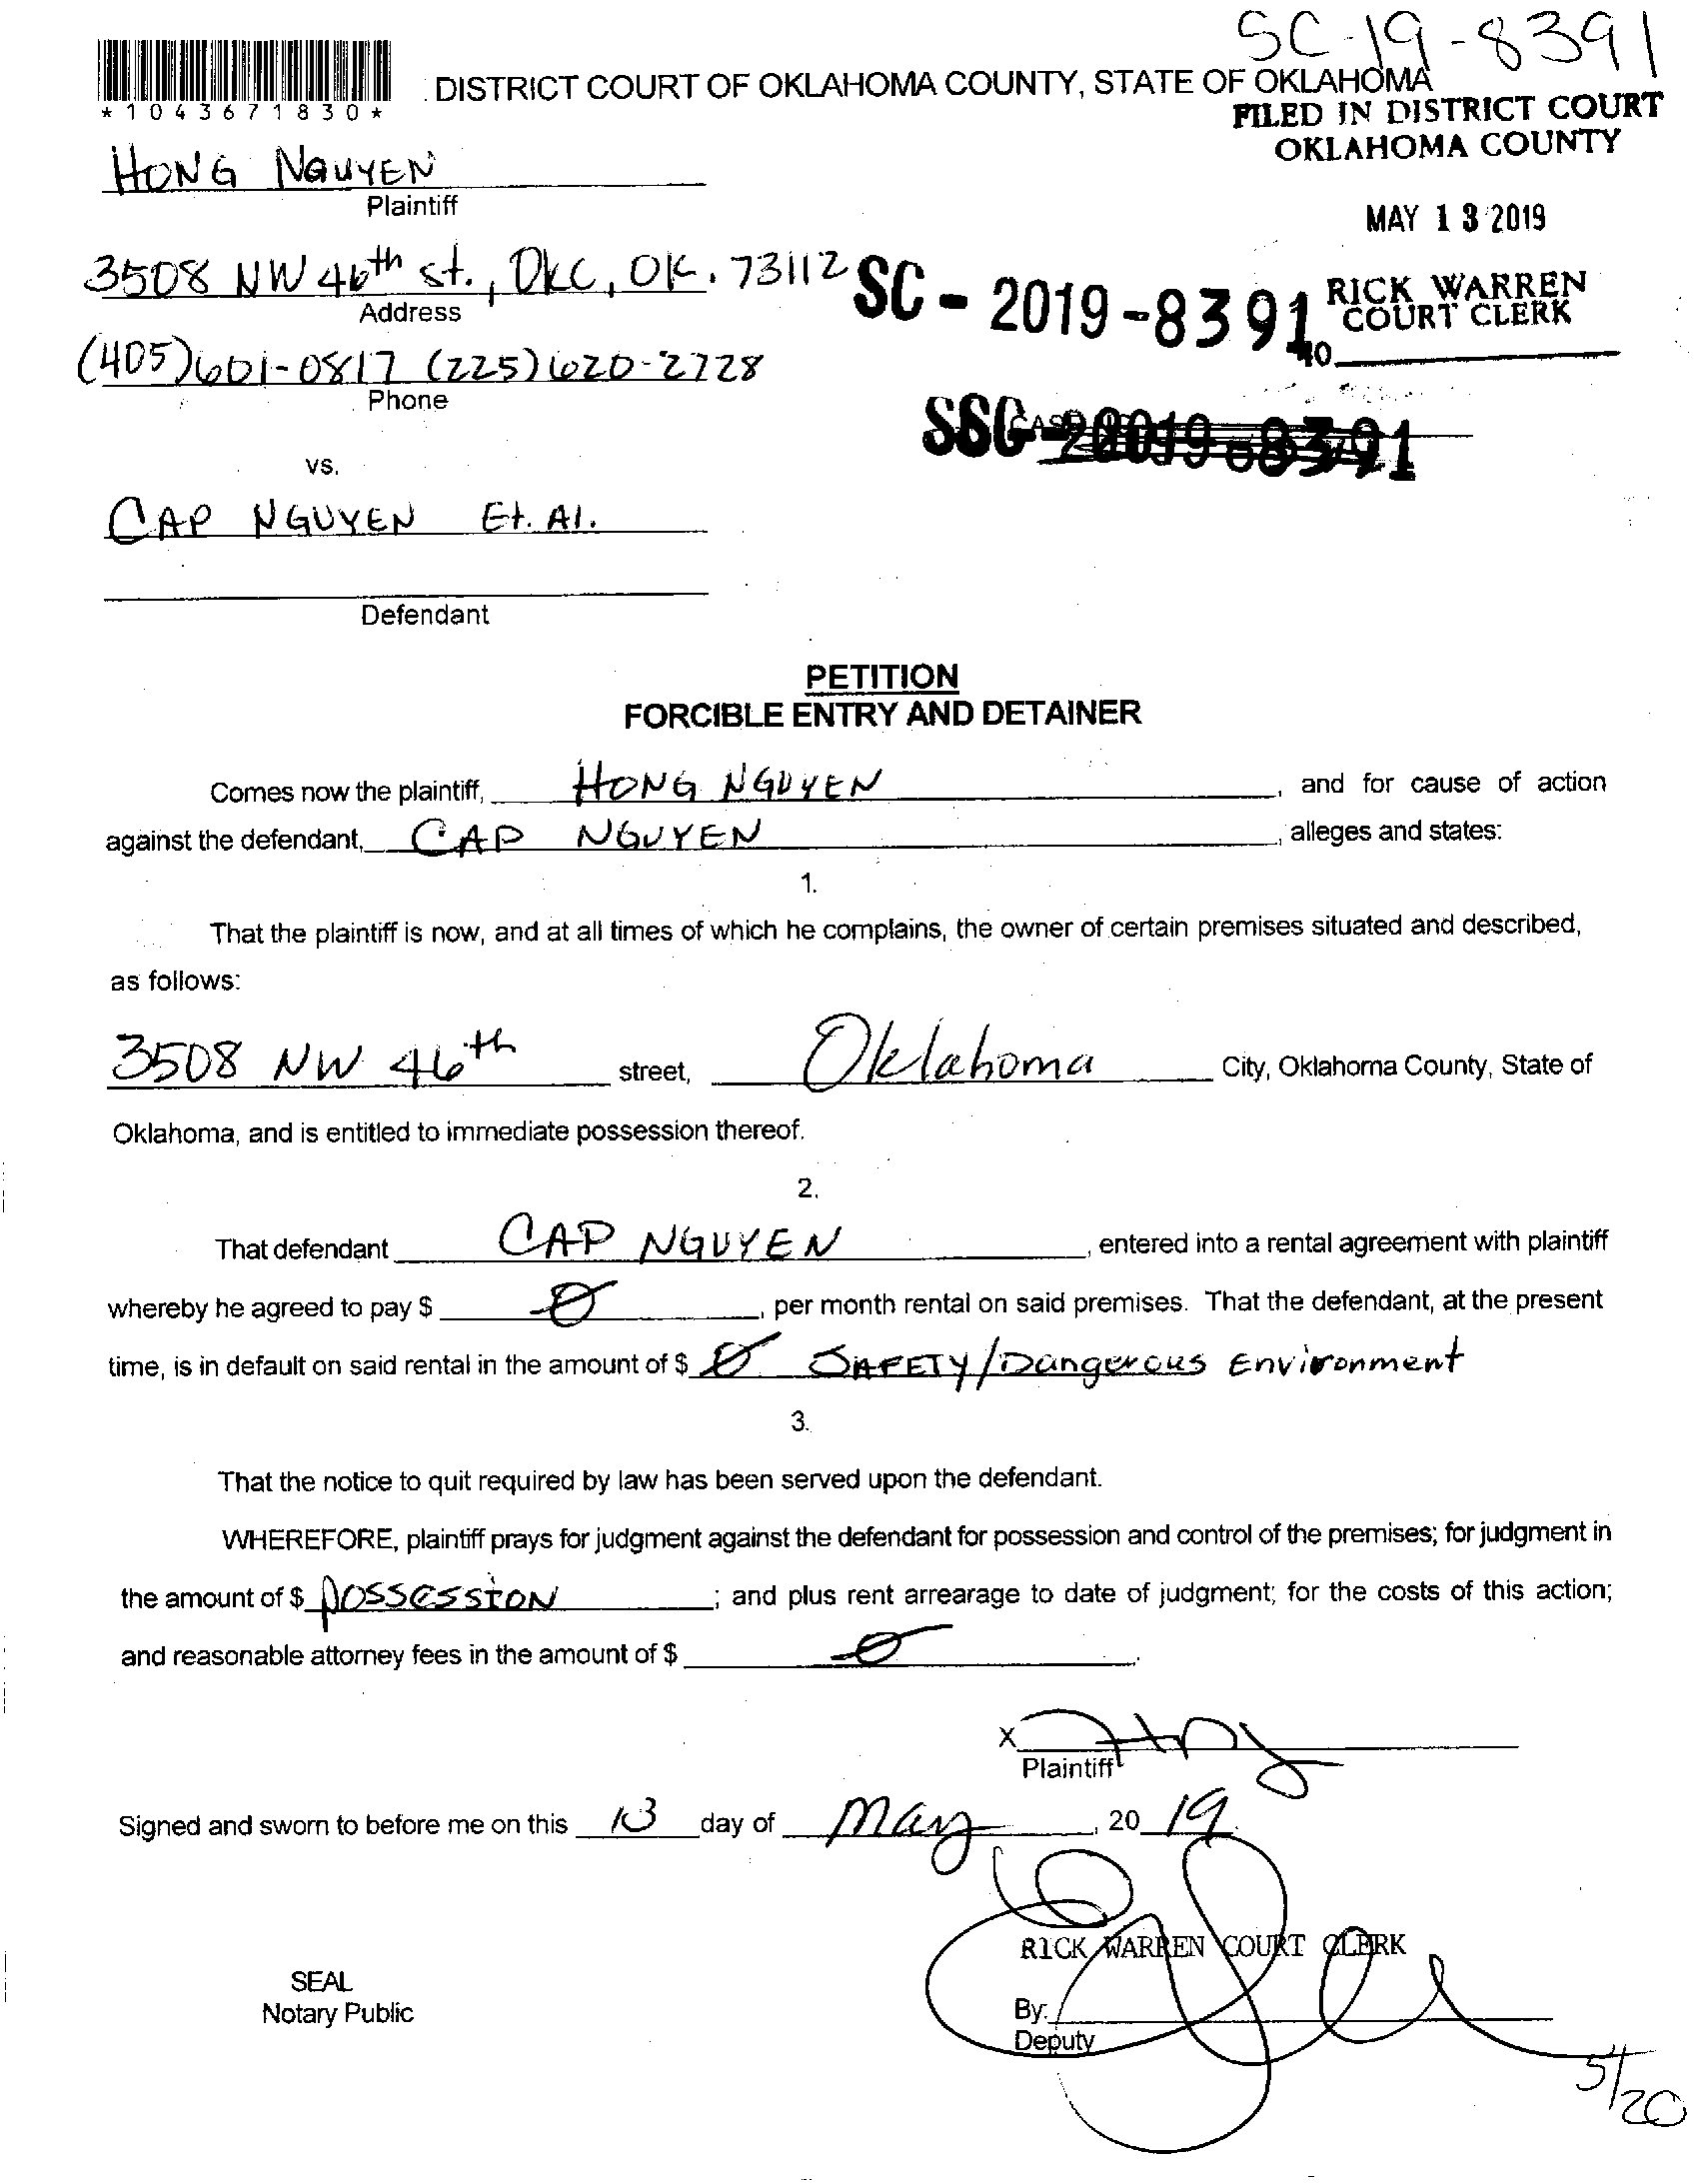 SC-19-8391
*1043671830*
DISTRICT COURT OF OKLAHOMA COUNTY, STATE OF OKLAHOMA
FILED IN DISTRICT COURT
OKLAHOMA COUNTY
HONG NGUYEN
Plaintiff
MAY 13 2019
3508 NW 46th st., OKC, OK. 73112
Address
SC - 2019 - 8391
RICK WARREN
COURT CLERK
40
(405)601-0817 (225)620-2728
Phone
vs.
CAP NGUYEN Et. Al.
Defendant
PETITION
FORCIBLE ENTRY AND DETAINER
Comes now the plaintiff, HONG NGUYEN, and for cause of action
against the defendant, CAP NGUYEN, alleges and states:
1.
That the plaintiff is now, and at all times of which he complains, the owner of certain premises situated and described,
as follows:
3508 NW 46th street, Oklahoma City, Oklahoma County, State of
Oklahoma, and is entitled to immediate possession thereof.
2.
That defendant CAP NGUYEN, entered into a rental agreement with plaintiff
whereby he agreed to pay $ 0, per month rental on said premises. That the defendant, at the present
time, is in default on said rental in the amount of $ 0 SAFETY/Dangerous Environment
3.
That the notice to quit required by law has been served upon the defendant.
WHEREFORE, plaintiff prays for judgment against the defendant for possession and control of the premises; for judgment in
the amount of $ POSSESSION; and plus rent arrearage to date of judgment; for the costs of this action;
and reasonable attorney fees in the amount of $ 0.
X
Plaintiff
Signed and sworn to before me on this 13 day of May, 2019.
RICK WARREN COURT CLERK
SEAL
Notary Public
By:
Deputy
5/20